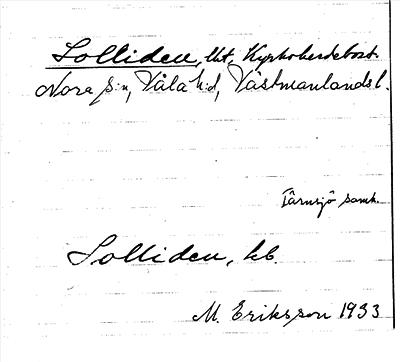 Solliden, lht, Kyrkoherdebost.
Nora s:n, Våla h:d, Västmanlands l.
Tärnsjö samh.
Solliden, hb.
M. Eriksson 1933